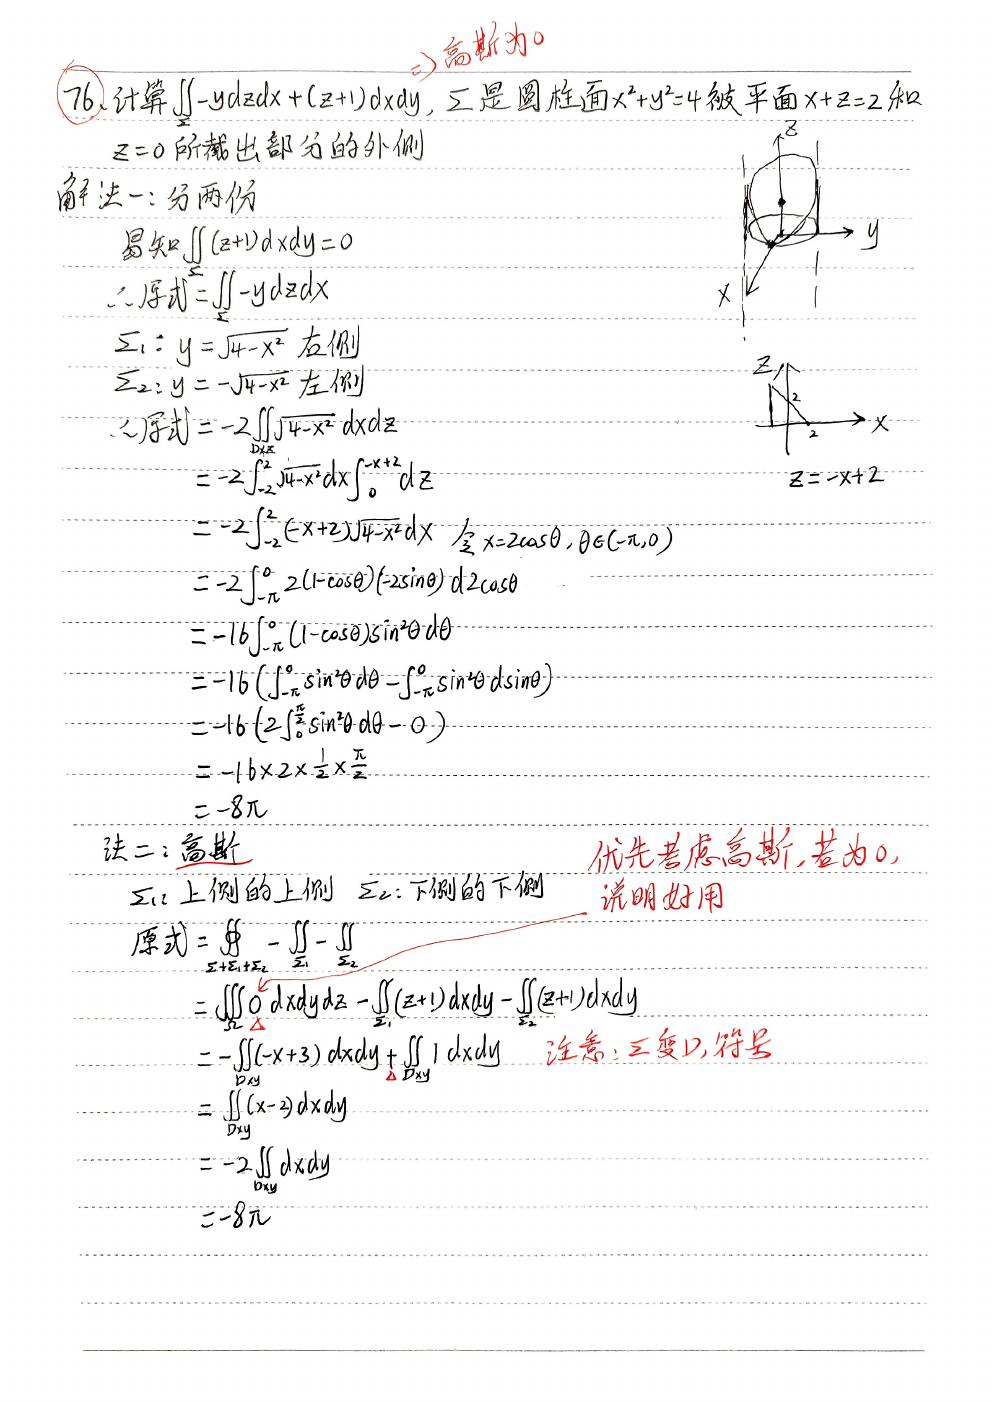 =) 高斯为0
76、计算∬_Σ -ydzdx+(z+1)dxdy, Σ是圆柱面x²+y²=4被平面x+z=2和
z=0所截出部分的外侧
z
y
x
解法一：分两份
易知∬_Σ(z+1)dxdy=0
∴原式=∬_Σ -ydzdx
Σ₁: y=√(4-x²) 右侧
Σ₂: y=-√(4-x²) 左侧
z
2
2
x
z=-x+2
∴原式=-2∬_Dxz √(4-x²) dxdz
=-2∫_{-2}^{2} √(4-x²)dx∫_{0}^{-x+2} dz
=-2∫_{-2}^{2} (-x+2)√(4-x²)dx 令x=2cosθ, θ∈(-π,0)
=-2∫_{-π}^{0} 2(1-cosθ)(-2sinθ) d2cosθ
=-16∫_{-π}^{0} (1-cosθ)sin²θdθ
=-16(∫_{-π}^{0} sin²θdθ-∫_{-π}^{0} sin²θdsinθ)
=-16(2∫_{0}^{π/2} sin²θdθ-0)
=-16×2×1/2×π/2
=-8π
法二：高斯
优先考虑高斯,若为0,
说明好用
Σ₁: 上侧的上侧 Σ₂: 下侧的下侧
原式=∯_{Σ+Σ₁+Σ₂} -∬_Σ₁ -∬_Σ₂
=∭_Ω 0 dxdydz-∬_Σ₁(z+1)dxdy-∬_Σ₂(z+1)dxdy
=-∬_Dxy(-x+3)dxdy+∬_Dxy 1dxdy 注意：Σ变D,符号
=∬_Dxy(x-2)dxdy
=-2∬_Dxy dxdy
=-8π